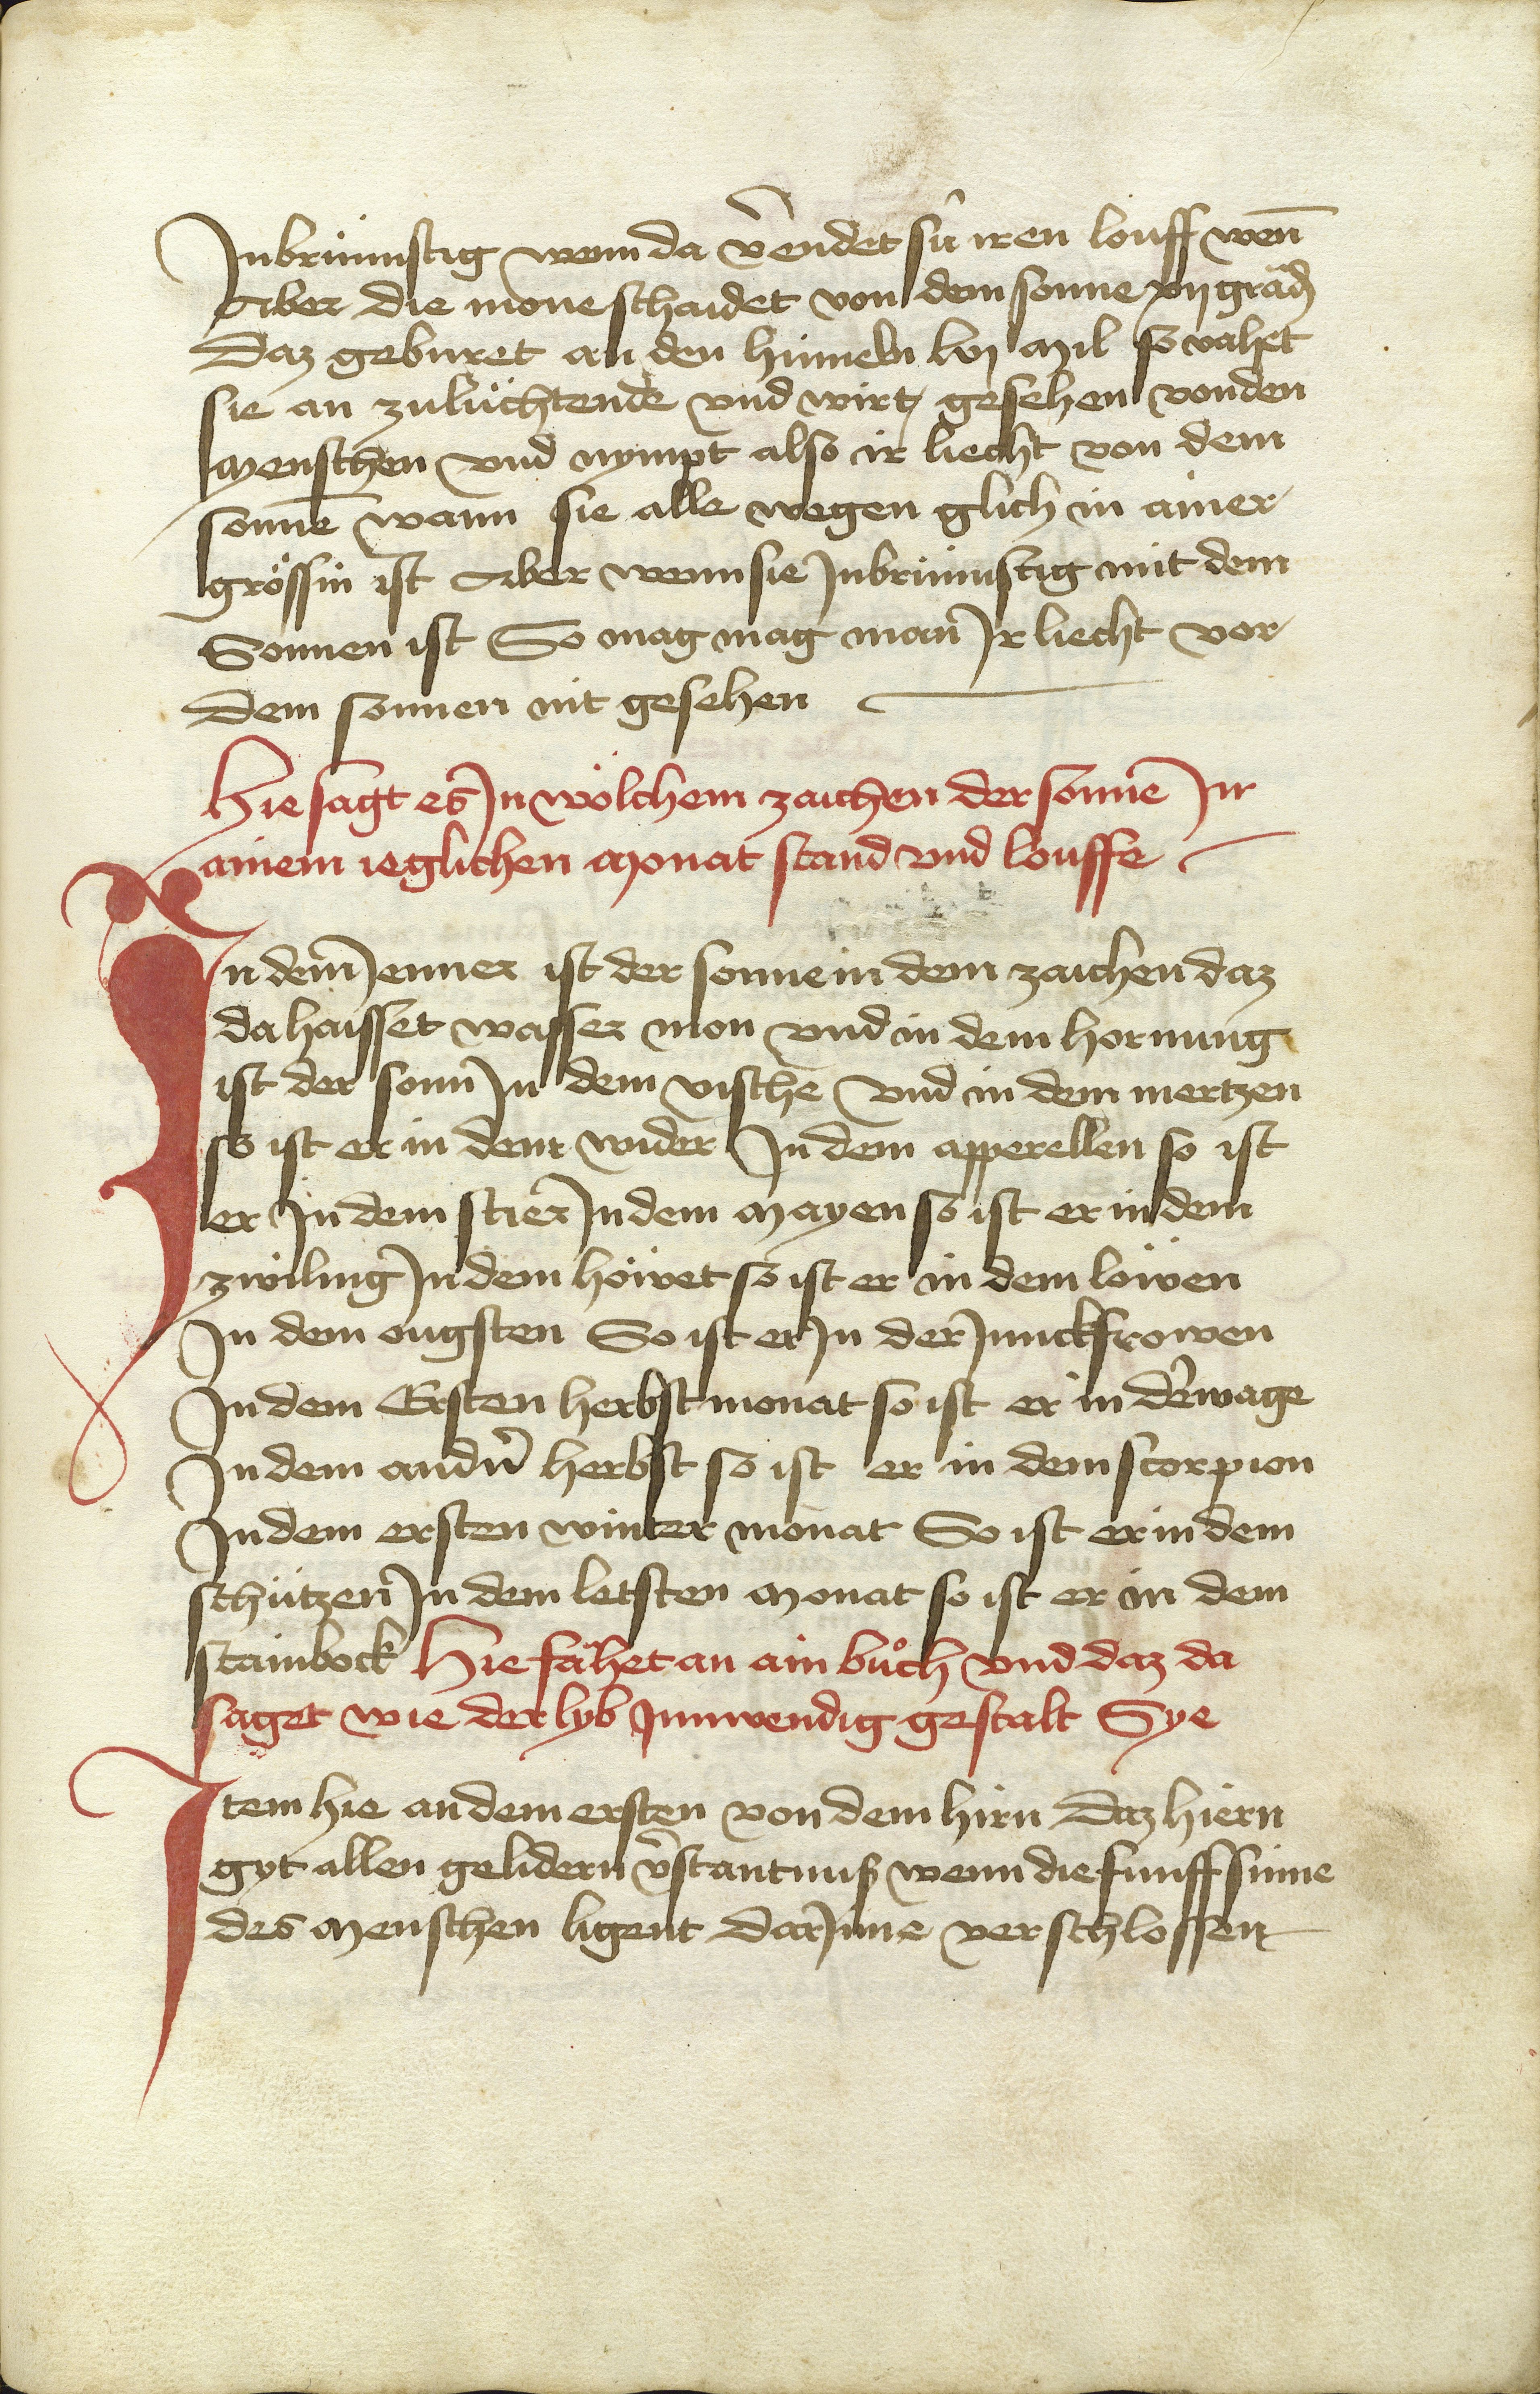 Inbrünnstig wenn da v̾endet sü iren louff weñ
Aber die mone schaidet von dem sonne xij gräd
Daz geburet an den himeln lvj Mil so vahet
sie an zulüchtende vnd wirt gesehen von den
Menschen vnd nympt also ir liecht von dem
sonne wann sie alle wegen glich in ainer
grössin ist Aber wenn sie Inbrünnstig mit dem
Sonnen ist So mag mag man Ir liecht vor
dem sonnen nit gesehen
Hie sagt es In wölchem zaichen der sonne In
ainem ieglichen Monat stand vnd louffe
In dem Jenner ist der sonne in dem zaichen daz
da haisset wasser mon vnd in dem hornung
ist der sonn In dem vische vnd in dem mertzen
so ist er in dem wider In dem apperellen so ist
er In dem stier In dem Mayen so ist er in dem
zwiling In dem höwet so ist er in dem löwen
In dem ougsten So ist er In der Junckfrowen
In dem Ersten herbst monat so ist er in der wage
In dem andn̾ herbst so ist er in dem scorpion
In dem ersten winter monat So ist er in dem
schützen In dem letsten Monat so ist er in dem
stainbock Hie fahet an ain bůch vnd daz da
saget wie der lyb Innwendig gestalt Sye
Item hie an dem ersten von dem hirn Daz hiern
gyt allen gelidern v̾stantnuß wenn die funff sinne
des Menschen ligent dar Inne verschlossen